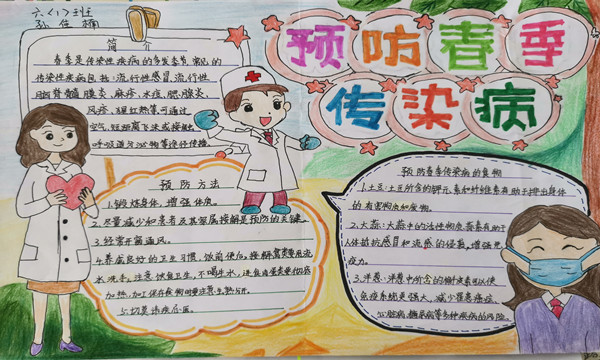 六（1）班
预防春季
传染病
简介
春季是传染性疾病的多发季节，常见的
传染性疾病包括：流行性感冒、流行性
脑脊髓膜炎、麻疹、水痘、腮腺炎、
风疹、猩红热等，可通过
空气、短距离飞沫或接触
呼吸道分泌物等途径传播
预防方法
1、锻炼身体，增强体质。
2、尽量减少和患者及其家属接触是预防的关键。
3、经常开窗通风。
4、养成良好的卫生习惯，饭前便后、接触
水洗手。注意饮食卫生，不喝生水，
加热，加工保存食物时要注意生熟分开。
5、切莫讳疾忌医。
预防春季传染病的食物
1、土豆：土豆所含的钾元素和纤维素有助于排出身体
的有害物质和废物。
2、大蒜：大蒜中的活性物质蒜素有助于
人体抵抗感冒和流感的侵袭，增强免
疫力。
3、洋葱：洋葱中所含的槲皮素可以使
免疫系统更强大，减少罹患癌症、
心脏病、糖尿病等多种疾病的风险。